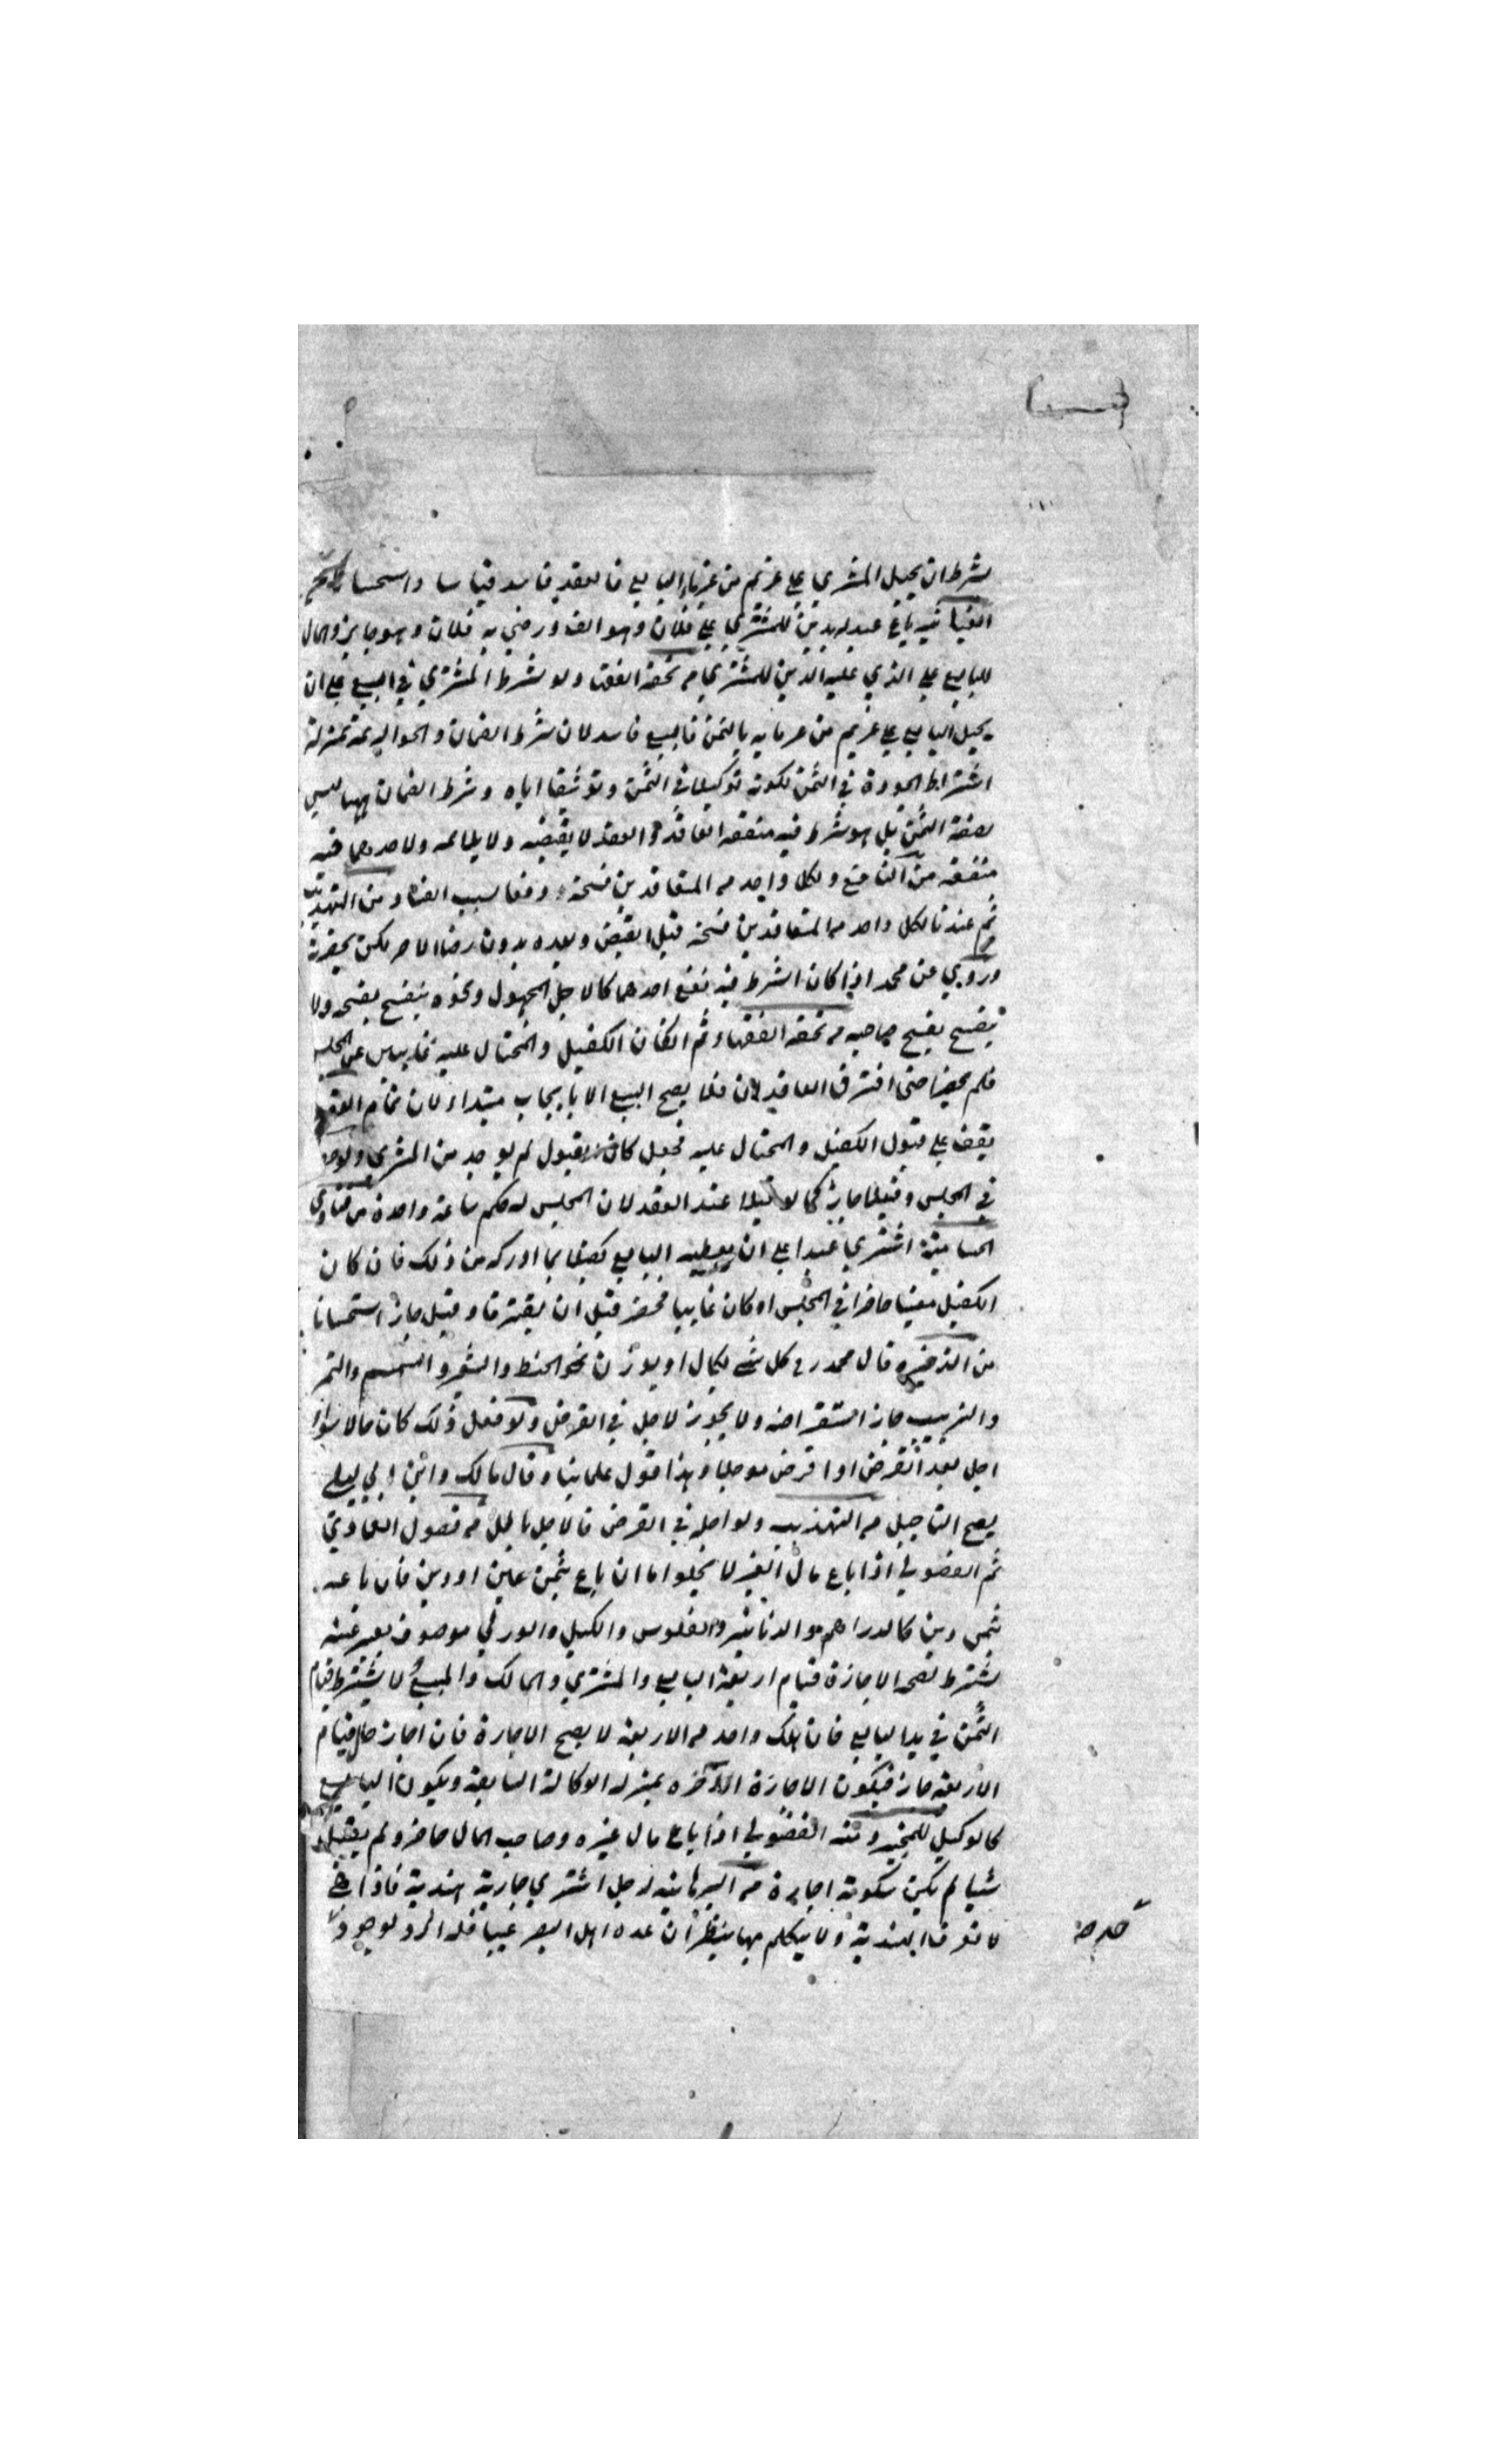 بشرط ان يحيل المشتري على غريم من غرماء البايع فالعقد فاسد قياسا واستحسانا
باع عبده بدين للمشتري على فلان وهو الف ورضي به فلان وهو جايز والمال
للبايع على الذي عليه الدين للمشتري من تحفة الفقهاء ولو شرط المشتري في البيع على ان
يحيل البايع على غريم من غرمايه بالثمن فالبيع فاسد لان شرط الضمان والحوالة بمنزلة
اشتراط الجودة في الثمن لكونه توكيدا في الثمن وتوثيقا اياه وشرط الضمان ههنا ليس
بصفة الثمن بل هو شرط فيه منفعة العاقد والعقد لا يقتضيه ولا يلايمه ولاحدهما فيه
منفعة من ولكل واحد من المتعاقدين فسخه دفعا لسبب الفساد من التهذيب
ثم عندنا لكل واحد من المتعاقدين فسخه قبل القبض وبعده بدون رضا الاخر لكن بحضرته
وروي عن محمد اذا كان الشرط فيه نفع احدهما كالاجل المجهول ونحوه ينفسخ بفسخه ولا
ينفسخ بفسخ صاحبه من تحفة الفقهاء ثم ان كان الكفيل والمحتال عليه غايبين عن المجلس
فلم يحضرا حتى افترق العاقدان فلا يصح البيع الا بايجاب مبتدا لان تمام العقد
يقف على قبول الكفيل والمحتال عليه فجعل كان القبول لم يوجد من المشتري ولو
في المجلس وقبلا جاز كما لو قبلا عند العقد لان المجلس له حكم ساعة واحدة من فتاوى
اشتري عبدا على ان يعطيه البايع كفيلا بما ادركه من ذلك فان كان
الكفيل معينا حاضرا في المجلس او كان غايبا فحضر قبل ان يفترقا وقبل جاز استحسانا
من الذخيره قال محمد رح كل شي يكال او يوزن نحو الحنطه والشعير والسمسم والتمر
والزبيب جاز استقراضه ولا يجوز الاجل في القرض ولو فعل ذلك كان حالا سواء
اجل بعد القرض او اقرض موجلا وهذا قول علماينا وقال مالك وابن ابي ليلى
يصح التاجيل من التهذيب ولو اجله في القرض فالاجل باطل من فصول العمادي
ثم الفضولي اذا باع مال الغير لا يخلوا اما ان باع بثمن عين او دين فان باعه
بثمن دين كالدراهم والدنانير والفلوس والكيلي والوزني موصوف بغير عينه
يشترط لصحة الاجازة قيام اربعة البايع والمشتري والمالك والمبيع لا يشترط قيام
الثمن في يد البايع فان هلك واحد من الاربعة لا يصح الاجازة فان اجاز حال قيام
الاربعة جاز فيكون الاجازة الاخره بمنزلة الوكالة السابقة ويكون البايع
كالوكيل للمجيز ومنه الفضولي اذا باع مال غيره وصاحب المال حاضر ولم يقل
شيا لم يكن سكوته اجازة من البرهانيه رجل اشتري جارية هندية فاذا هي
لا تعرف الهندية ولا يتكلم بها ينظر ان عده اهل البصر عيبا فله الرد لوجود